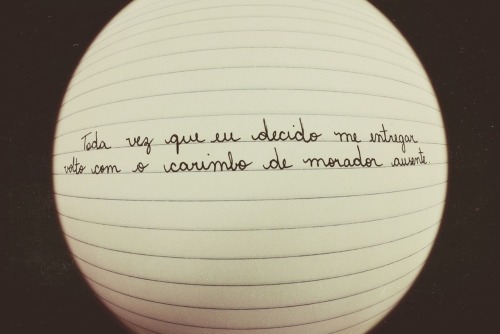 Toda vez que eu decido me entregar
volto com o carimbo de morador ausente.